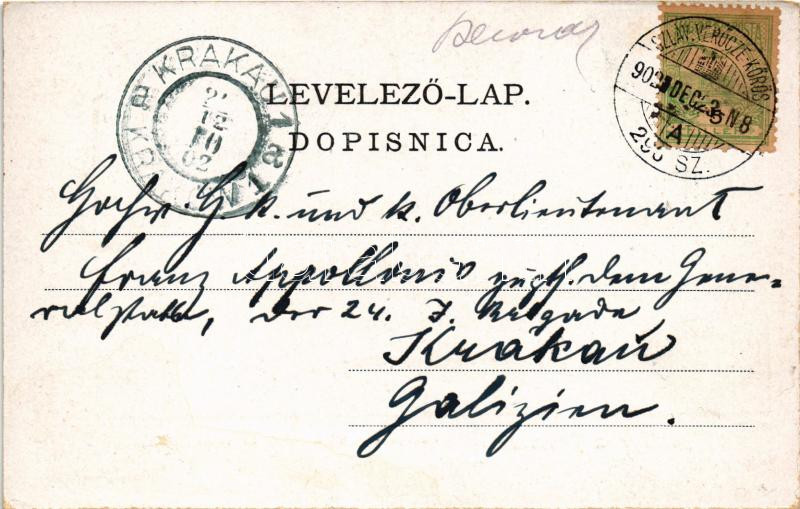 KRAKAU 1
LEVELEZŐ-LAP.
DOPISNICA.
SZLAV. VERŐCZE-KŐRÖS
902 DEC 23 N8
A
296 SZ.
k. und k. Oberlieutenant
Franz Appollonio zugth. dem Gene-
ralstabe, der 24. I. Brigade
Krakau
Galizien.